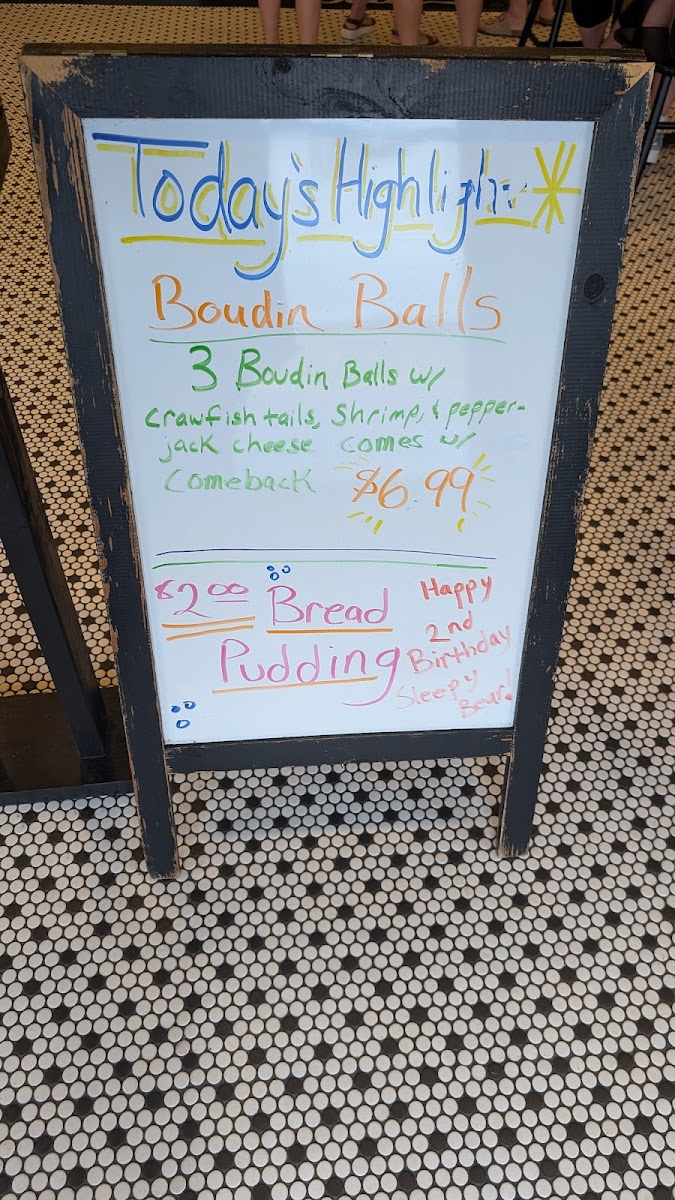 Today's Highlights
Boudin Balls
3 Boudin Balls w/
crawfish tails, Shrimp, & pepper-
jack cheese comes w/
comeback $6.99
$2.00 Bread
Pudding
Happy
2nd
Birthday
Sleepy
Bear!